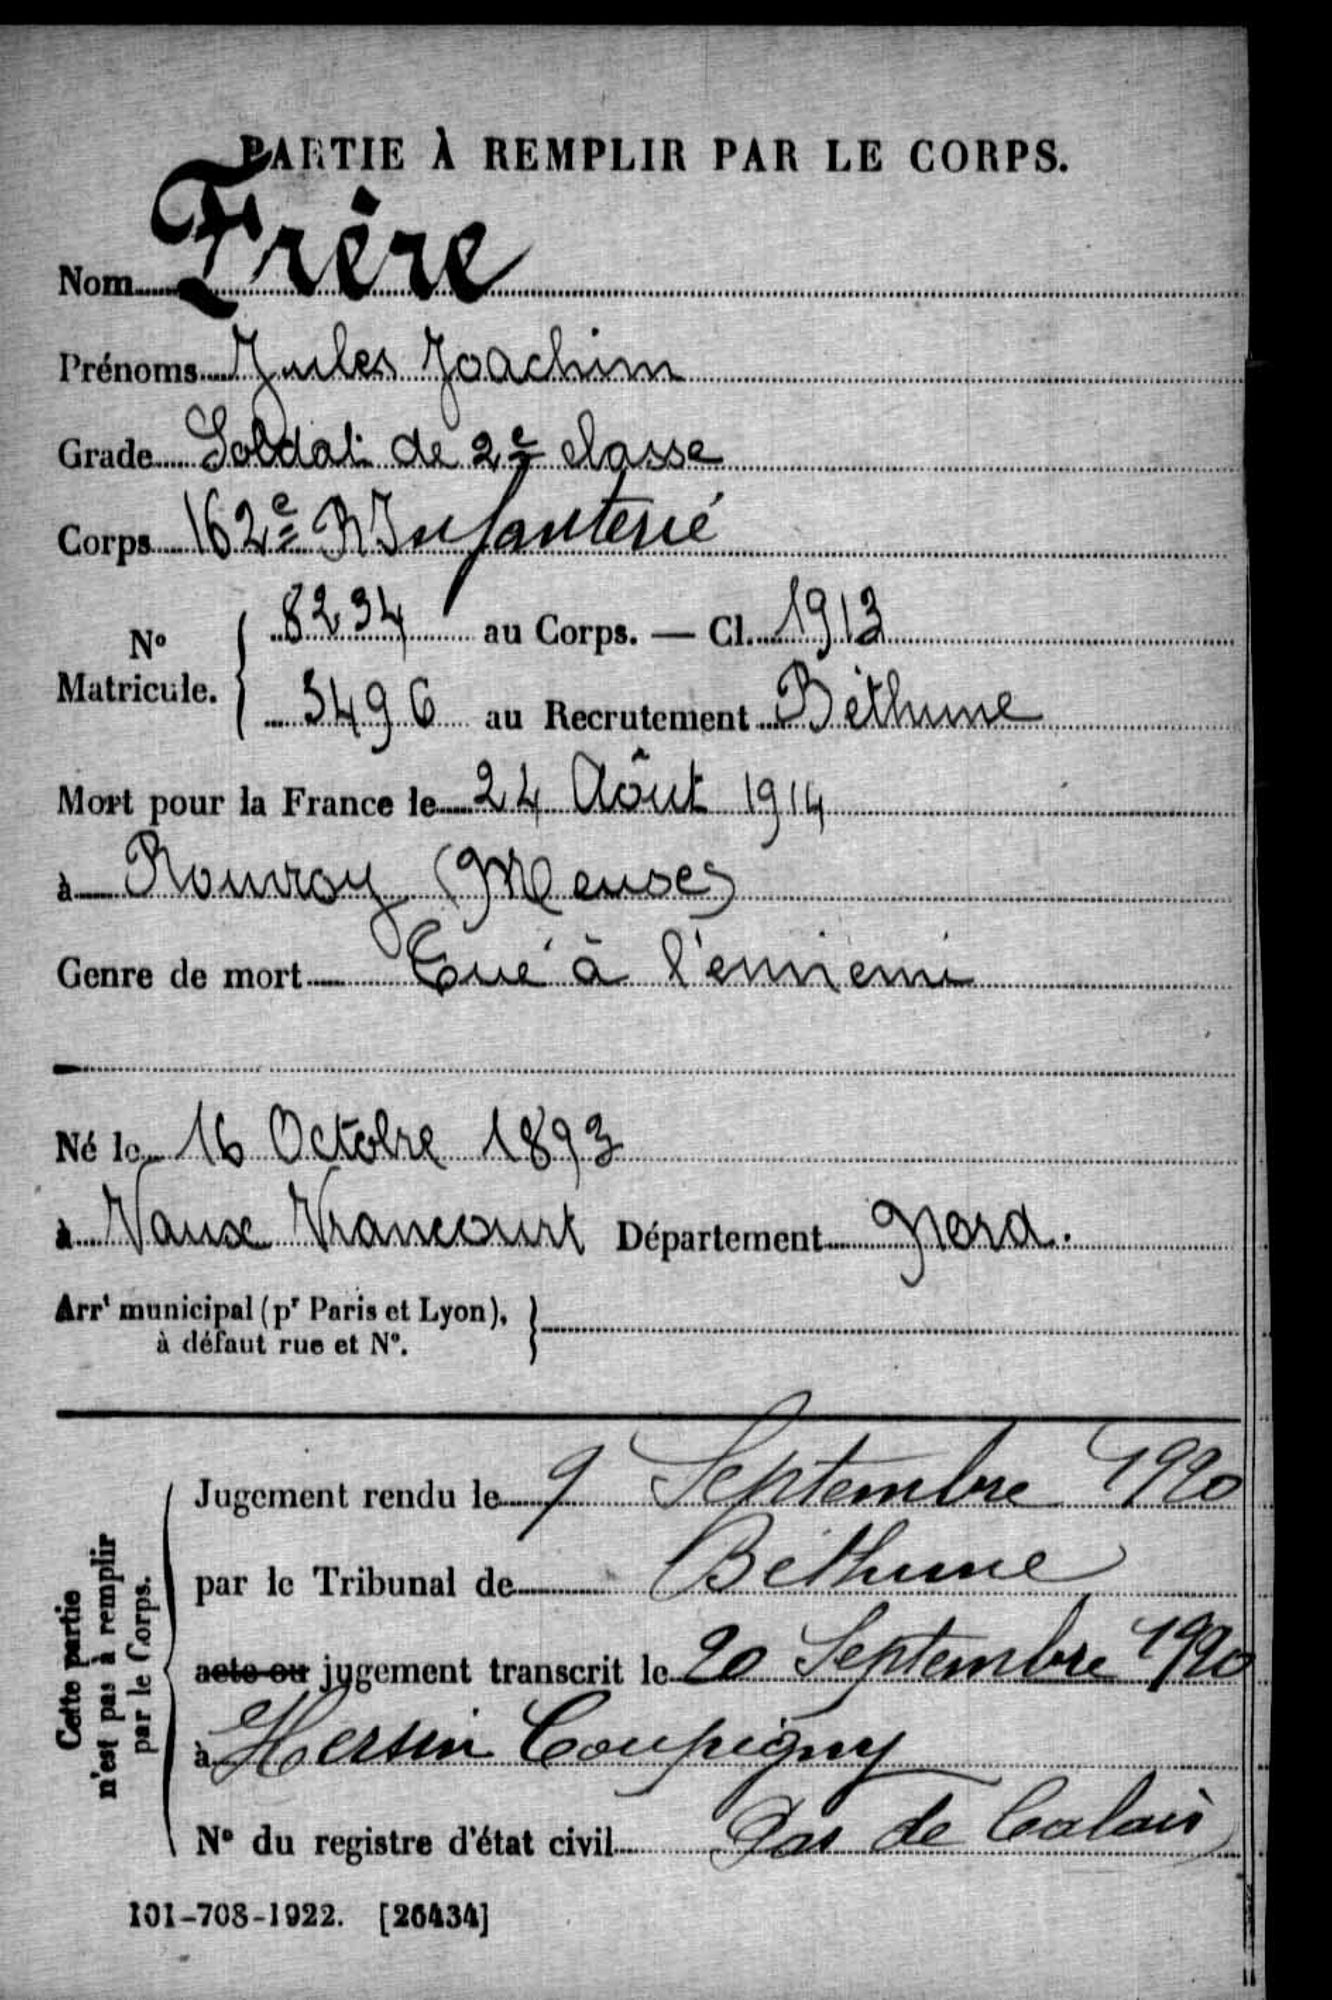 PARTIE À REMPLIR PAR LE CORPS.
Nom Frère
Prénoms Jules Joachim
Grade Soldat de 2e classe
Corps 162e R Infanterie
N° Matricule. { 8234 au Corps. — Cl. 1913
3496 au Recrutement Béthune
Mort pour la France le 24 Août 1914
à Rouvroy (Meuse)
Genre de mort Tué à l'ennemi
Né le 16 Octobre 1893
à Vaux Vraucourt Département Nord.
Arrt municipal (pr Paris et Lyon),
à défaut rue et N°.
Cette partie
n'est pas à remplir
par le Corps.
Jugement rendu le 9 Septembre 1920
par le Tribunal de Béthune
acte ou jugement transcrit le 20 Septembre 1920
à Hersin Coupigny
N° du registre d'état civil Pas de Calais
101-708-1922. [26434]